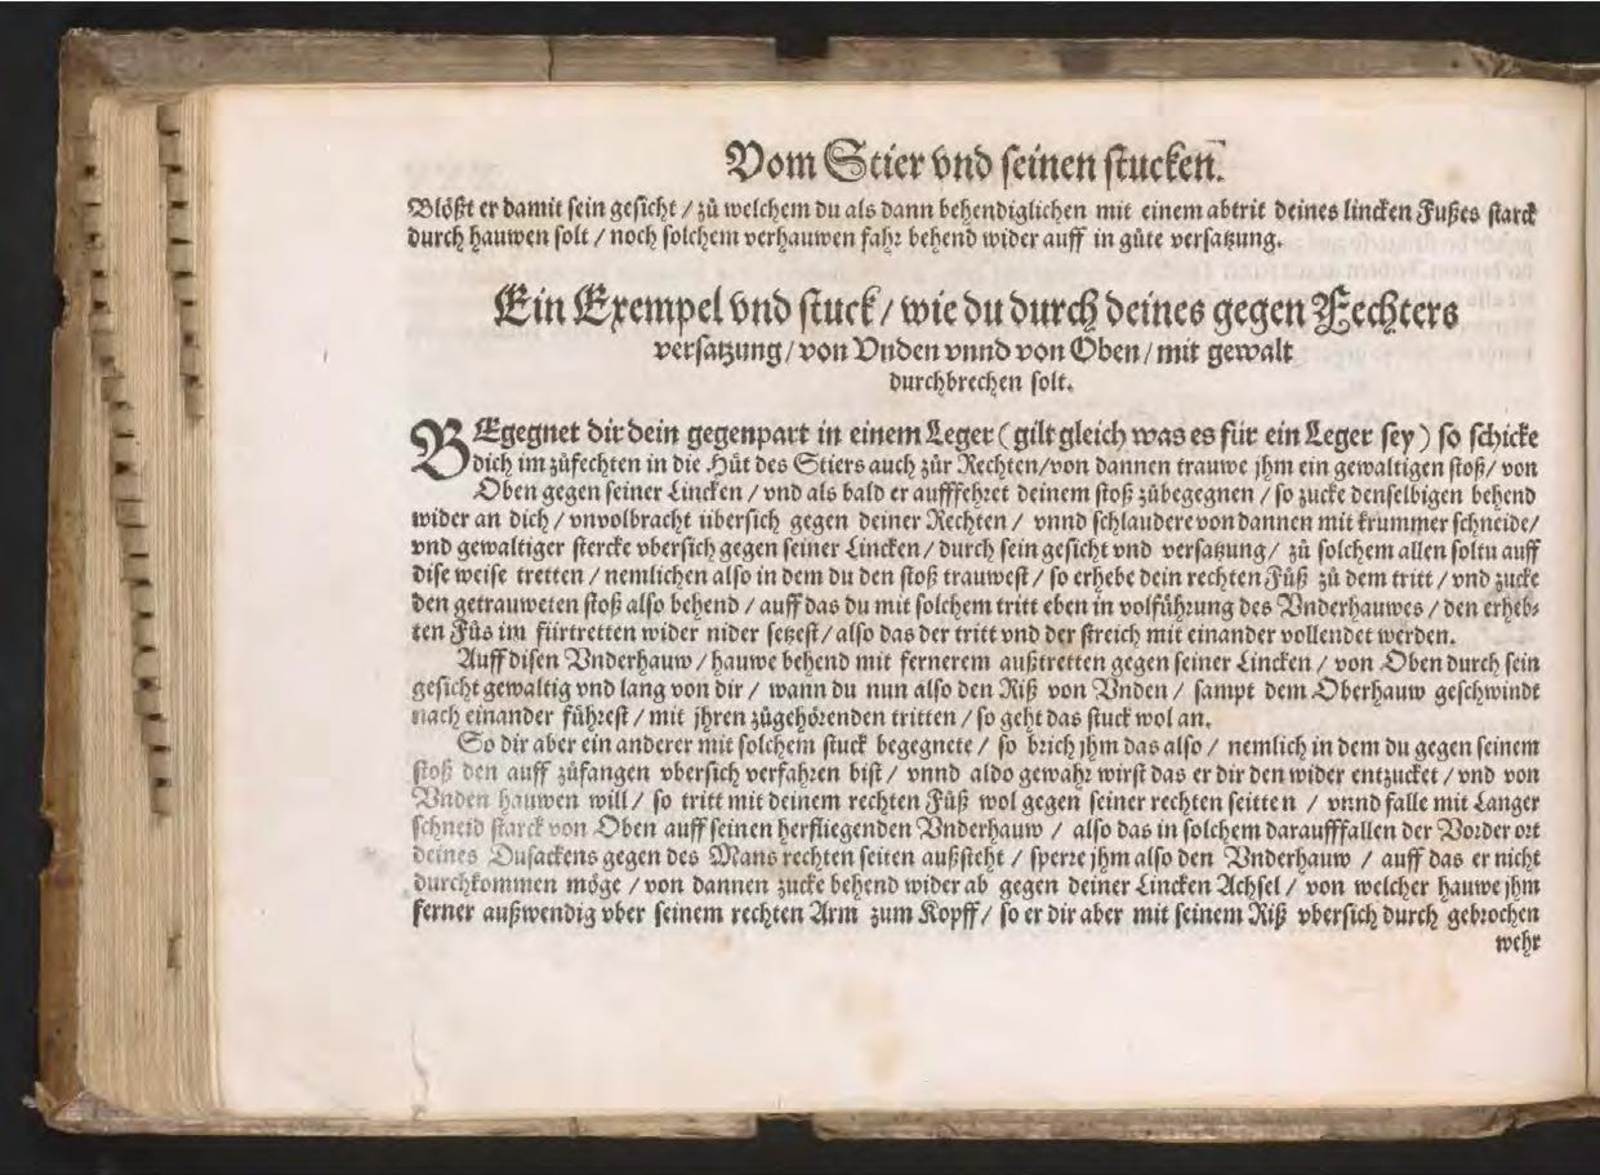 Vom Stier vnd seinen stucken.
Blößt er damit sein gesicht / zů welchem du als dann behendiglichen mit einem abtrit deines lincken Fußes starck
durch hauwen solt / noch solchem verhauwen fahr behend wider auff in gůte versatzung.
Ein Exempel vnd stuck / wie du durch deines gegen Fechters
versatzung / von Vnden vnnd von Oben / mit gewalt
durchbrechen solt.
BEgegnet dir dein gegenpart in einem Leger (gilt gleich was es für ein Leger sey) so schicke
dich im zůfechten in die Hůt des Stiers auch zůr Rechten / von dannen trauwe jhm ein gewaltigen stoß / von
Oben gegen seiner Lincken / vnd als bald er aufffehret deinem stoß zůbegegnen / so zucke denselbigen behend
wider an dich / vnvolbracht übersich gegen deiner Rechten / vnnd schlaudere von dannen mit krummer schneide /
vnd gewaltiger stercke vbersich gegen seiner Lincken / durch sein gesicht vnd versatzung / zů solchem allen soltu auff
dise weise tretten / nemlichen also in dem du den stoß trauwest / so erhebe dein rechten Fůß zů dem tritt / vnd zucke
den getrauweten stoß also behend / auff das du mit solchem tritt eben in volführung des Vnderhauwes / den erheb⸗
ten Fůs im fürtretten wider nider setzest / also das der tritt vnd der streich mit einander vollendet werden.
Auff disen Vnderhauw / hauwe behend mit fernerem außtretten gegen seiner Lincken / von Oben durch sein
gesicht gewaltig vnd lang von dir / wann du nun also den Riß von Vnden / sampt dem Oberhauw geschwindt
nach einander führest / mit jhren zůgehörenden tritten / so geht das stuck wol an.
So dir aber ein anderer mit solchem stuck begegnete / so brich jhm das also / nemlich in dem du gegen seinem
stoß den auff zůfangen vbersich verfahren bist / vnnd aldo gewahr wirst das er dir den wider entzucket / vnd von
Vnden hauwen will / so tritt mit deinem rechten Fůß wol gegen seiner rechten seitten / vnnd falle mit Langer
schneid starck von Oben auff seinen herfliegenden Vnderhauw / also das in solchem daraufffallen der Vorder ort
deines Dusackens gegen des Mans rechten seiten außsteht / sperre jhm also den Vnderhauw / auff das er nicht
durchkommen möge / von dannen zucke behend wider ab gegen deiner Lincken Achsel / von welcher hauwe jhm
ferner außwendig vber seinem rechten Arm zum Kopff / so er dir aber mit seinem Riß vbersich durch gebrochen
wehr